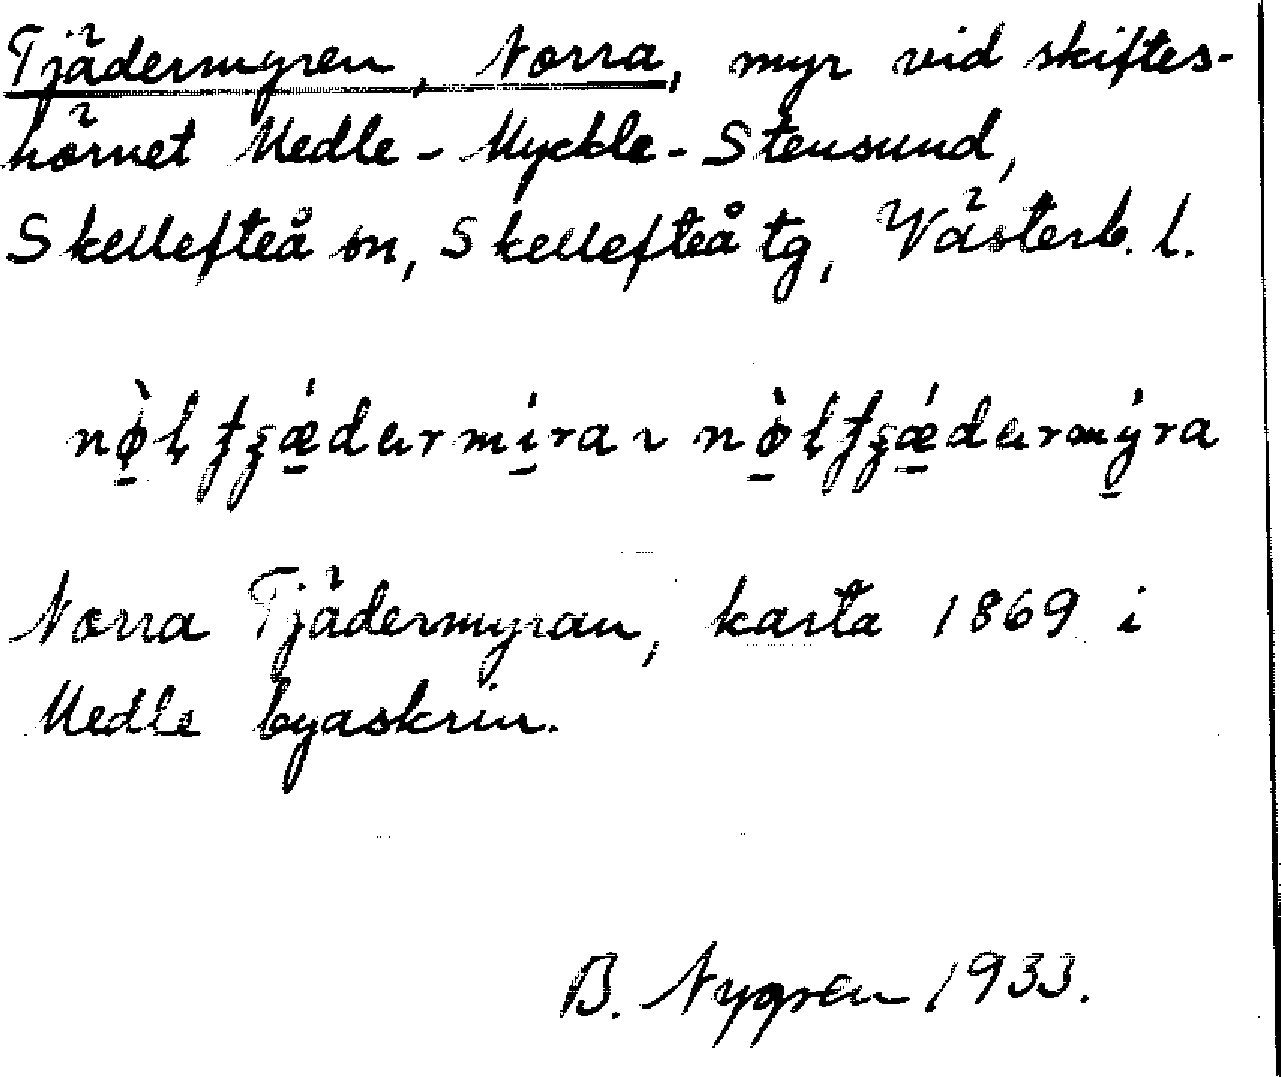 Tjädermyren, Norra, myr vid skiftes-
hörnet Medle - Myckle - Stensund,
Skellefteå sn, Skellefteå tg, Västerb. l.
Norra Tjädermyran, karta 1869 i
Medle byaskrin.
B. Nygren 1933.